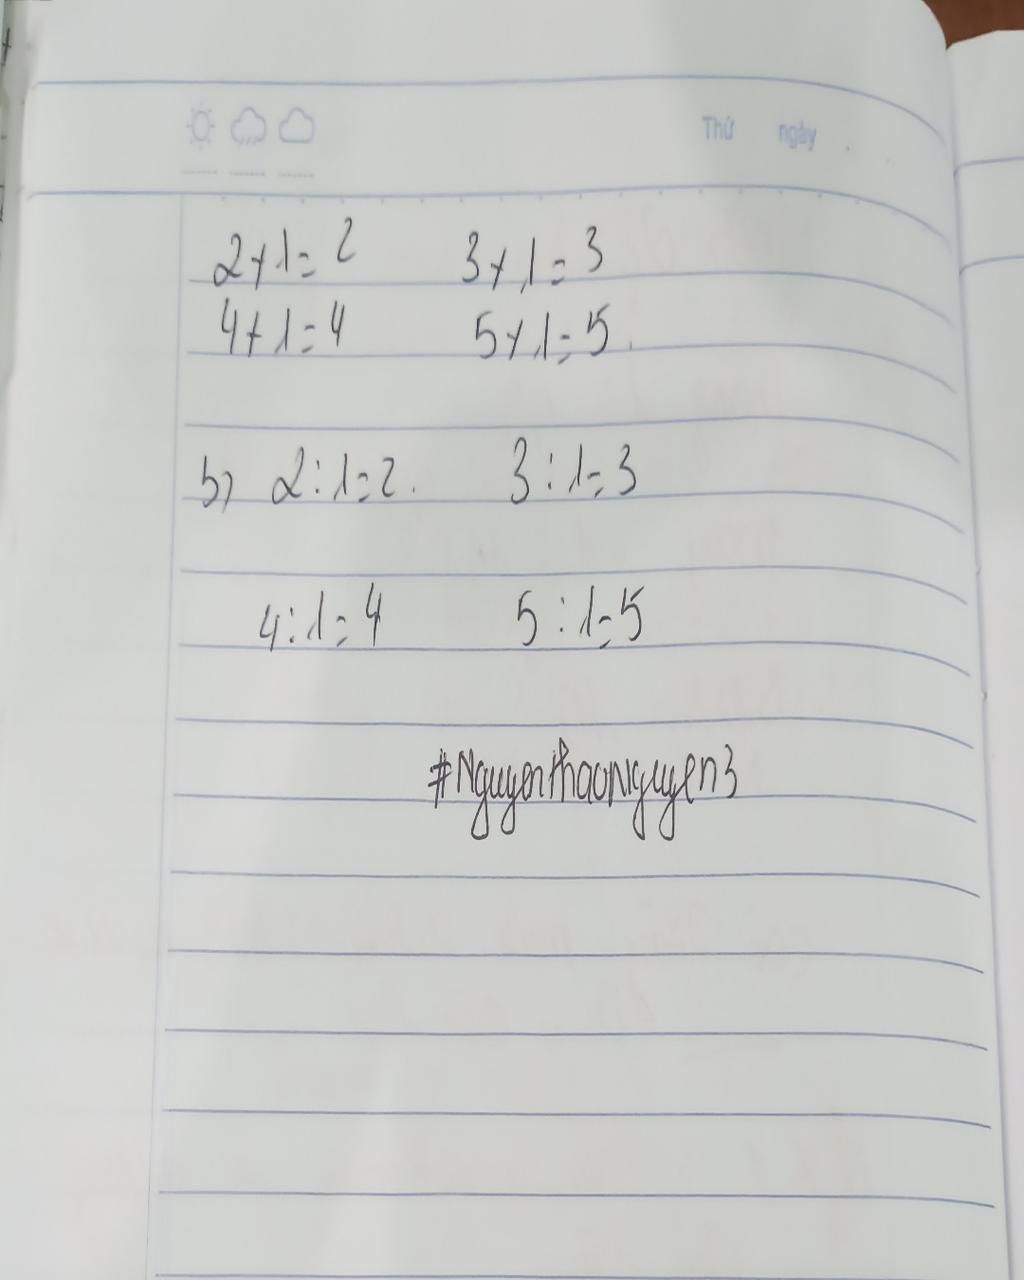 Thứ ngày
2 x 1 = 2 3 x 1 = 3
4 x 1 = 4 5 x 1 = 5
b) 2 : 1 = 2 3 : 1 = 3
4 : 1 = 4 5 : 1 = 5
#NguyenthaoNguyen3